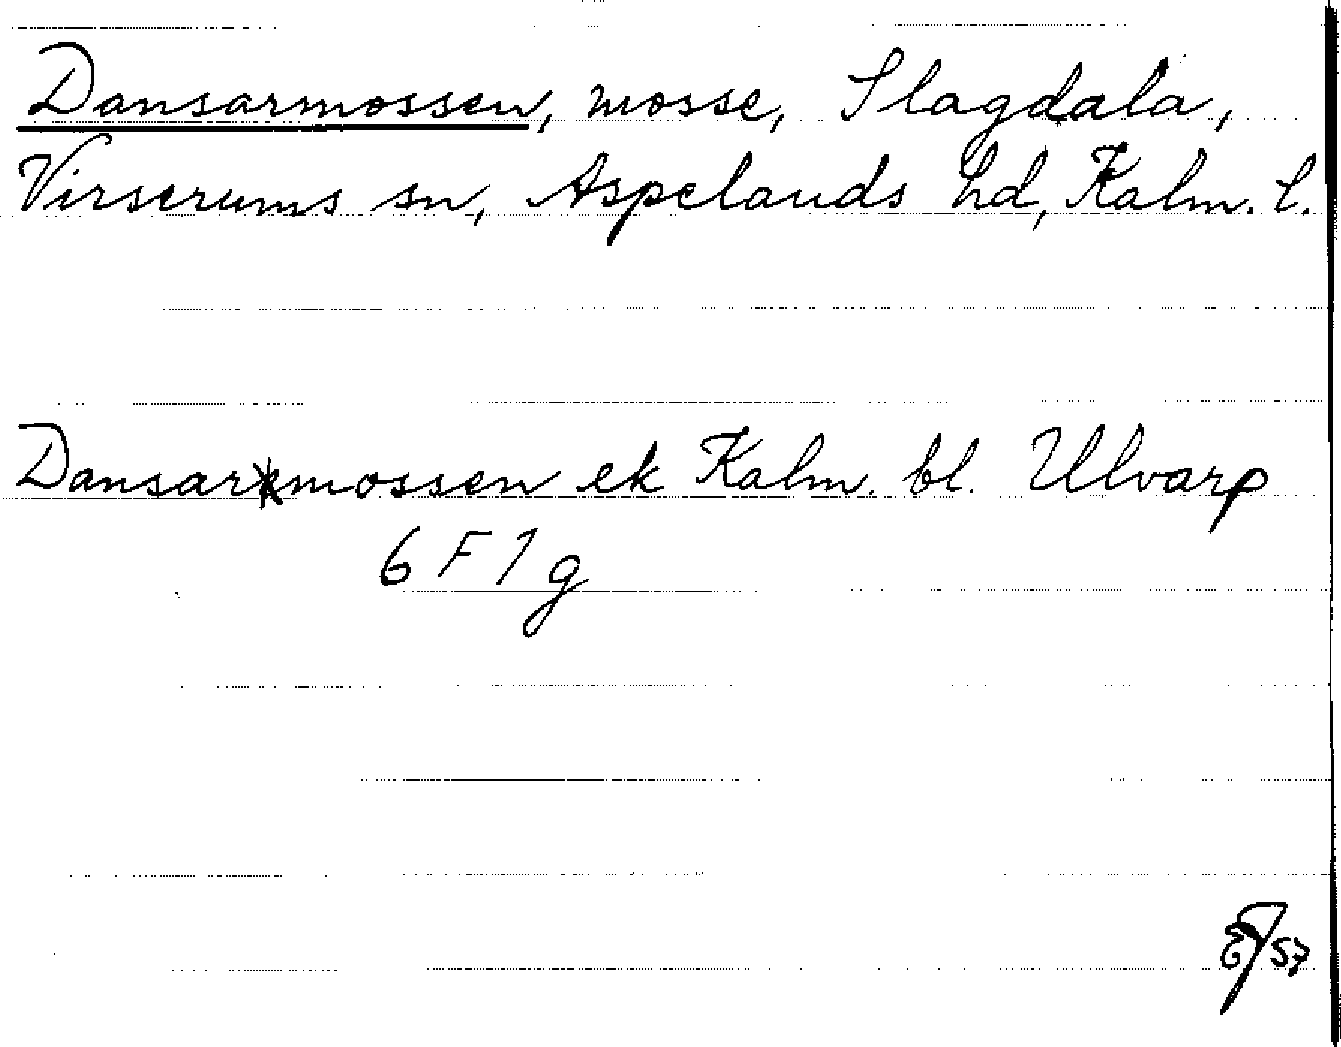 Dansarmossen, mosse, Slagdala,
Virserums sn, Aspelands hd, Kalm. l.
Dansarmossen ek Kalm. bl. Ulvarp
6 F 1 g
57